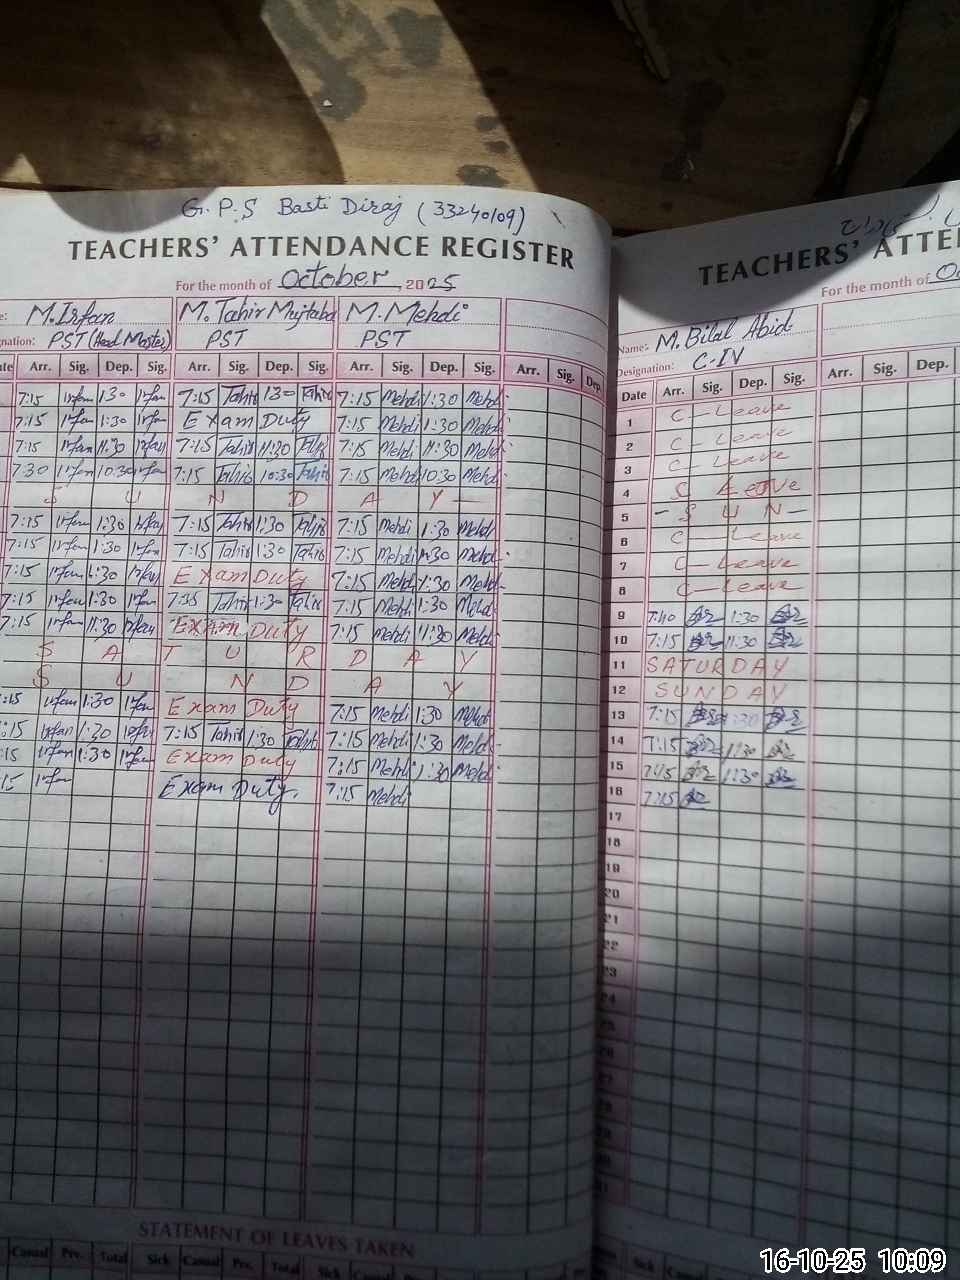 G.P.S Basti Diraj (33240109)
TEACHERS' ATTENDANCE REGISTER
For the month of October 2025
M. Irfan M. Tahir Mujtaba M. Mehdi
gnation: PST (Head Master) PST PST
Arr. Sig. Dep. Sig. Arr. Sig. Dep. Sig. Arr. Sig. Dep. Sig. Arr. Sig. Dep.
7:15 Irfan 1:30 Irfan 7:15 Tahir 1:30 Tahir 7:15 Mehdi 1:30 Mehdi
7:15 Irfan 1:30 Irfan Exam Duty 7:15 Mehdi 1:30 Mehdi
7:15 Irfan 11:30 Irfan 7:15 Tahir 11:30 Tahir 7:15 Mehdi 11:30 Mehdi
7:30 Irfan 10:30 Irfan 7:15 Tahir 10:30 Tahir 7:15 Mehdi 10:30 Mehdi
S U N D A Y
7:15 Irfan 1:30 Irfan 7:15 Tahir 1:30 Tahir 7:15 Mehdi 1:30 Mehdi
7:15 Irfan 1:30 Irfan 7:15 Tahir 1:30 Tahir 7:15 Mehdi 1:30 Mehdi
7:15 Irfan 1:30 Irfan Exam Duty 7:15 Mehdi 1:30 Mehdi
7:15 Irfan 1:30 Irfan Tahir 1:30 Tahir 7:15 Mehdi 1:30 Mehdi
7:15 Irfan 11:30 Irfan Exam Duty 7:15 Mehdi 11:30 Mehdi
S A T U R D A Y
S U N D A Y
:15 Irfan 1:30 Irfan Exam Duty 7:15 Mehdi 1:30 Mehdi
:15 Irfan 1:30 Irfan 7:15 Tahir 1:30 Tahir 7:15 Mehdi 1:30 Mehdi
:15 Irfan 1:30 Irfan Exam Duty 7:15 Mehdi 1:30 Mehdi
15 Irfan Exam Duty. 7:15 Mehdi
STATEMENT OF LEAVES TAKEN
Casual Prv. Total Sick Casual Prv. Total Sick Casual Prv. Total
TEACHERS' ATTE
For the month of Oc
Name: M. Bilal Abid
Designation: C-IV
Date Arr. Sig. Dep. Sig. Arr. Sig. Dep.
1 C-Leave
2 C-Leave
3 C-Leave
4 C Leave
5 - S U N -
6 C-Leave
7 C-Leave
8 C-Leave
9 7:40 1:30
10 7:15 11:30
11 SATURDAY
12 SUNDAY
13 7:15 1:30
14 7:15 1:30
15 7:15 1:30
16 7:15
17
18
19
20
21
22
23
24
Sick Casual Prv. Total Sick
16-10-25 10:09